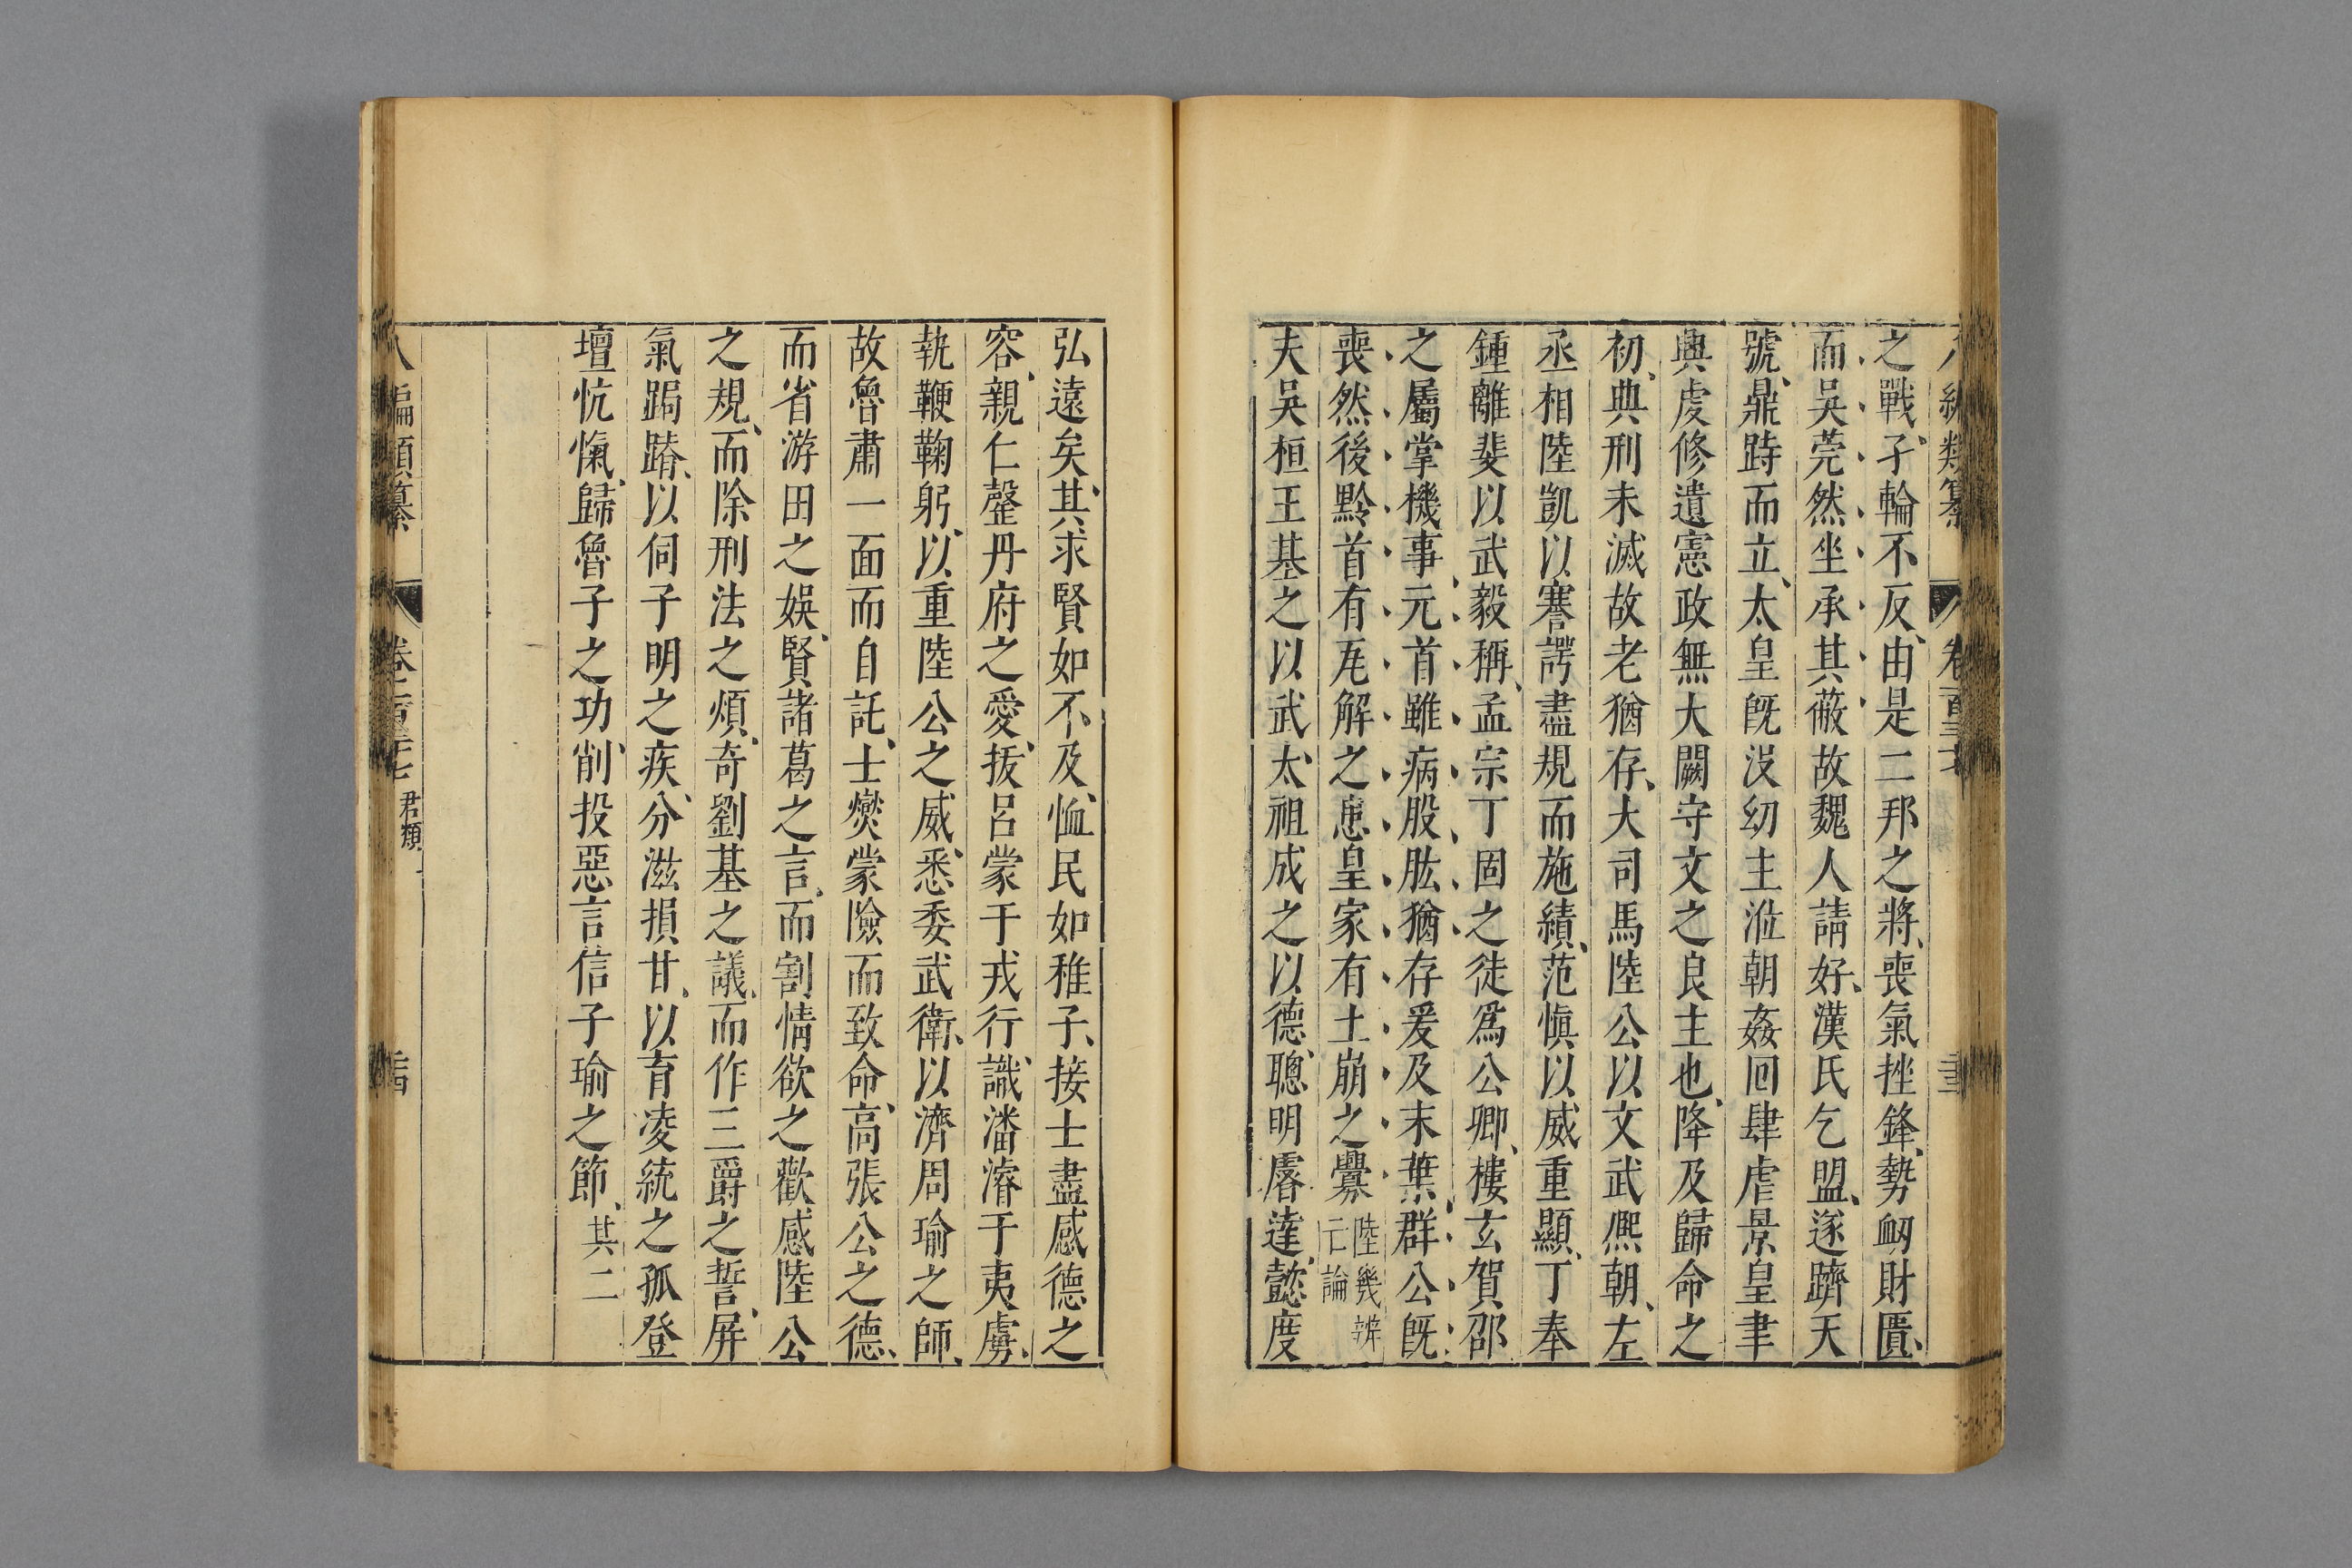 之戰、孑輪不反、由是二邦之將、喪氣挫鋒、勢衂財匱、
而吳莞然坐承其蔽故魏人請好、漢氏乞盟、遂躋天
號、鼎跱而立、太皇旣没幼主涖朝姦回肆虐景皇聿
興虔修遺憲政無大闕守文之良主也、降及歸命之
初、典刑未滅故老猶存、大司馬陸公以文武熈朝、左
丞相陸凱以謇諤盡規而施績、范慎以威重顯、丁奉
鍾離斐以武毅稱、孟宗丁固之徒爲公卿、樓玄賀邵
之屬掌機事、元首雖病股肱猶存爰及末葉、群公旣
喪然後黔首有瓦解之患、皇家有土崩之釁陸幾辨亡論
夫吳桓王基之以武太祖成之以德、聰明睿達、懿度
弘遠矣、其求賢如不及、恤民如稚子、接士盡感德之
容、親仁罄丹府之愛、拔呂蒙于戎行、識潘濬于夷虜、
執鞭鞠躬、以重陸公之威、悉委武衛、以濟周瑜之師、
故魯肅一面而自託、士燮蒙險而致命、高張公之德、
而省游田之娛、賢諸葛之言、而割情欲之歡感陸公
之規、而除刑法之煩、奇劉基之議、而作三爵之誓、屏
氣跼蹐、以伺子明之疾、分滋損甘、以育凌統之孤登
壇忼愾、歸魯子之功、削投惡言信子瑜之節、其二
八編類纂
卷一百二十七
君類